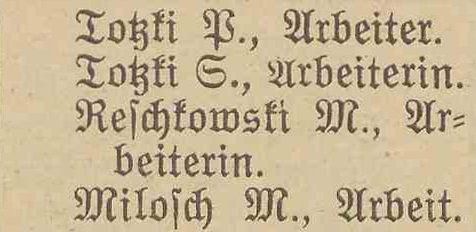 Totzki P., Arbeiter.
Totzki S., Arbeiterin.
Reſchkowski M., Ar⸗
beiterin.
Miloſch M., Arbeit.